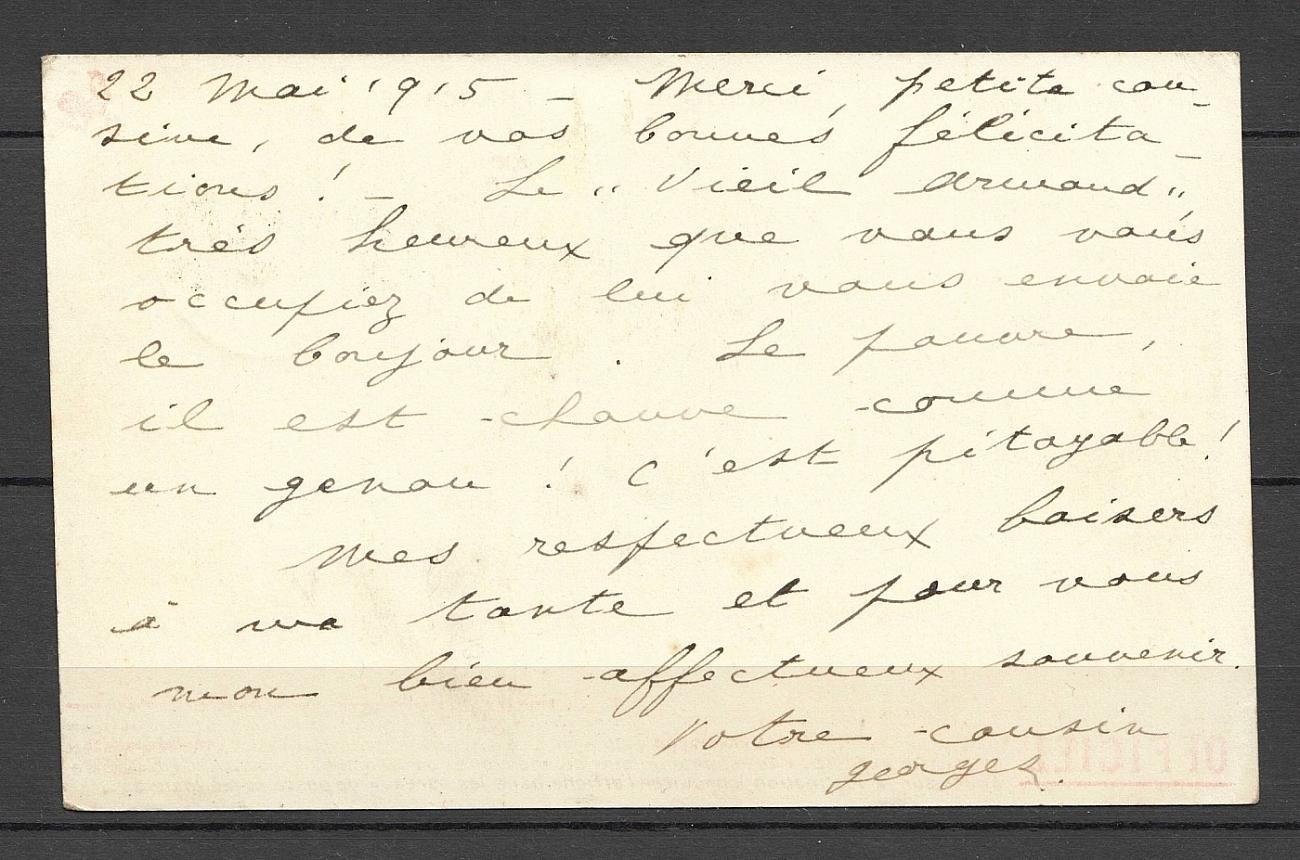 22 Mai 1915 – Merci, petite cou-
sine, de vos bonnes félicita-
tions ! – Le "Vieil Armand"
très heureux que vous vous
occupiez de lui vous envoie
le bonjour. Le pauvre,
il est chauve comme
un genou ! C'est pitoyable !
Mes respectueux baisers
à ma tante et pour vous
mon bien affectueux souvenir.
Votre cousin
Georges.